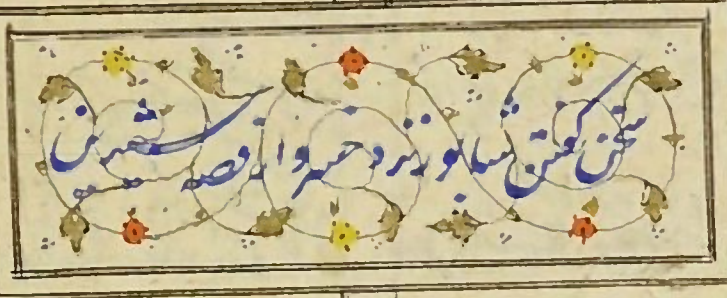 سخن گفتن شاپور نزد خسرو از قصه شیرین